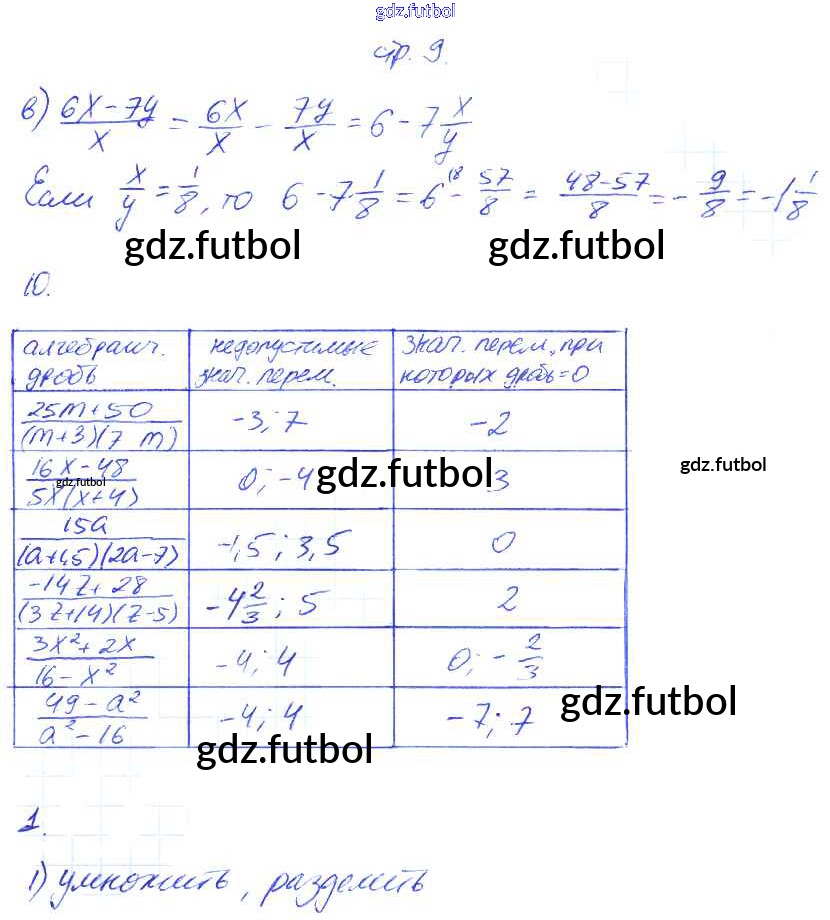 gdz.futbol
стр. 9.
в) (6x - 7y)/x = 6x/x - 7y/x = 6 - 7 x/y
Если x/y = 1/8, то 6 - 7 1/8 = 6 - 57/8 = (48 - 57)/8 = - 9/8 = -1 1/8
gdz.futbol gdz.futbol
10.
алгебраич. дробь | недопустимые знач. перем. | знач. перем., при которых дробь = 0
(25m + 50)/((m + 3)(7 m)) | -3; 7 | -2
(16x - 48)/(5x(x + 4)) | 0; -4 | 3
gdz.futbol gdz.futbol gdz.futbol
15a/((a + 1,5)(2a - 7)) | -1,5; 3,5 | 0
(-14z + 28)/((3z + 14)(z - 5)) | -4 2/3; 5 | 2
(3x² + 2x)/(16 - x²) | -4; 4 | 0; - 2/3
(49 - a²)/(a² - 16) | -4; 4 | -7; 7
gdz.futbol
gdz.futbol
1.
1) умножить, разделить